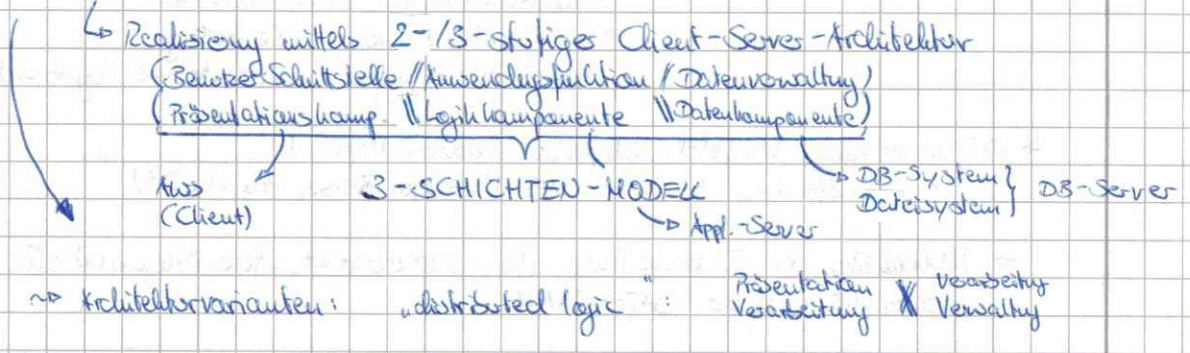 ↳ Realisierung mittels 2-/3-stufiger Client-Server-Architektur
(Benutzer Schnittstelle // Anwendungsfunktion // Datenverwaltung)
(Präsentationskomp. \\ Logikkomponente \\ Datenkomponente)
AWS 3-SCHICHTEN-MODELL → DB-System } DB-Server
(Client) Dateisystem
→ Appl.-Server
~> Architekturvarianten: „distributed logic“: Präsentation X Verarbeitung
Verarbeitung Verwaltung